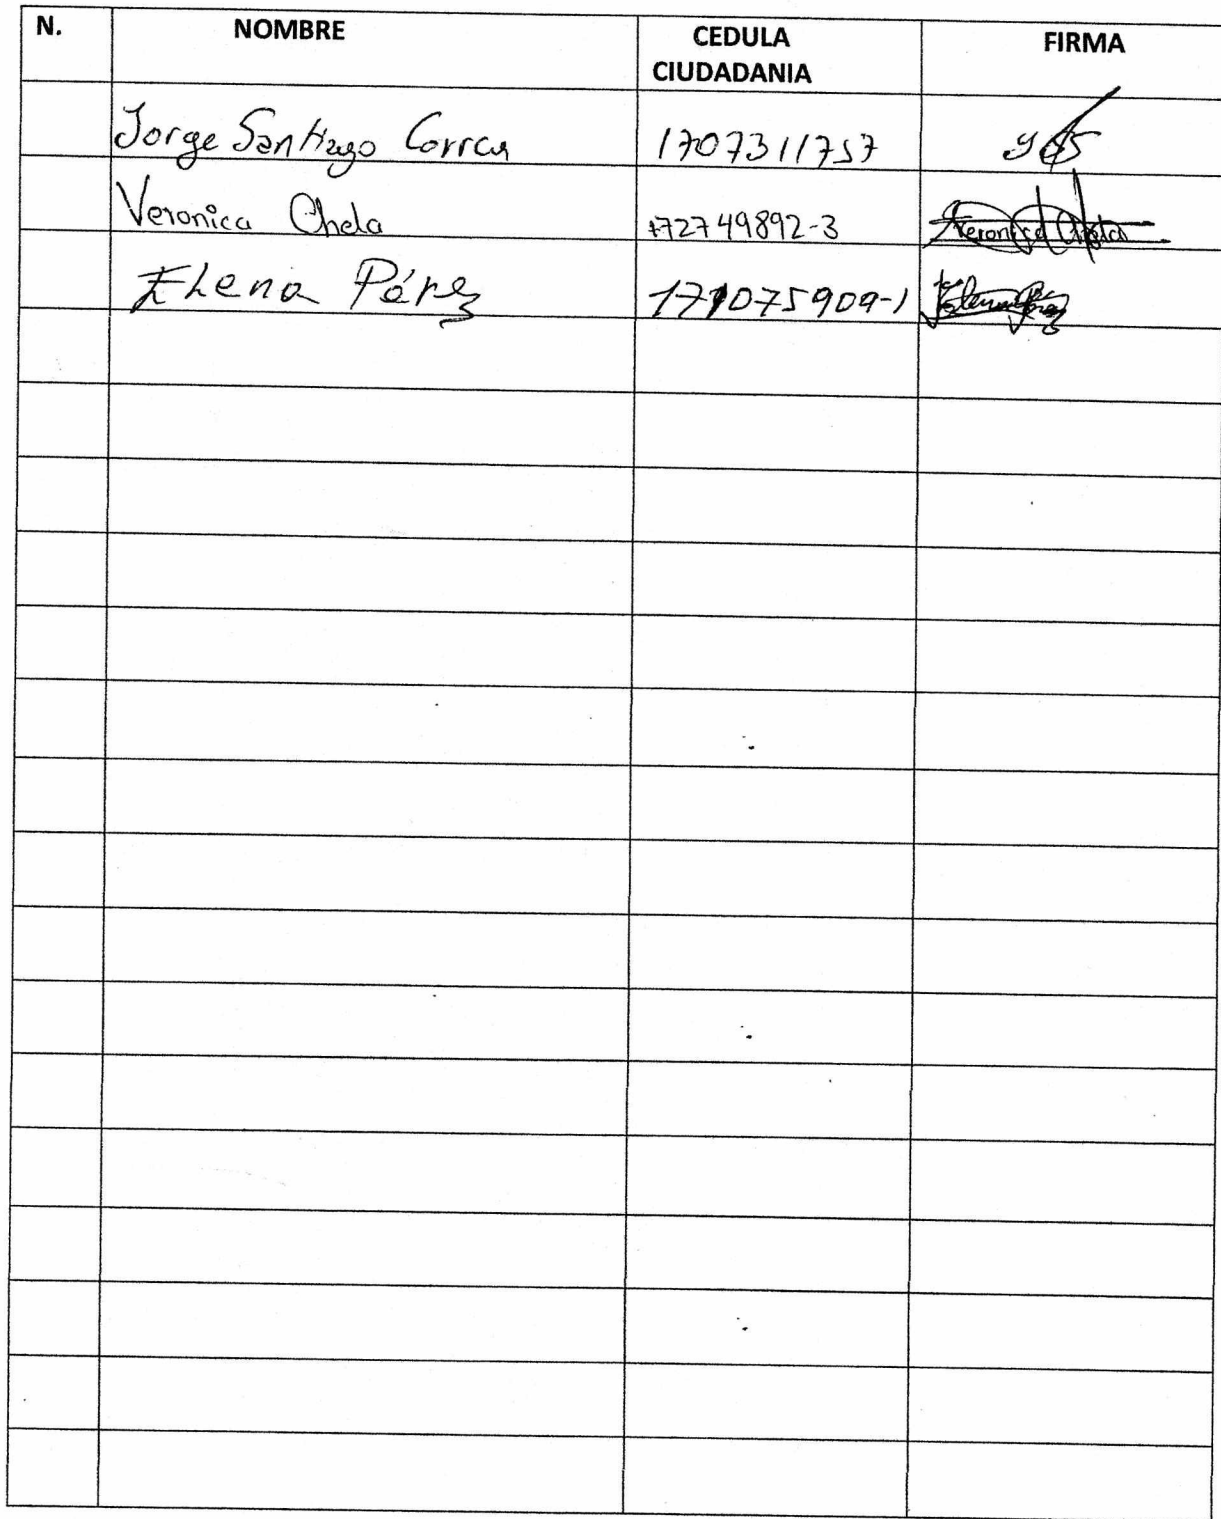 N. NOMBRE CEDULA CIUDADANIA FIRMA
Jorge Santiago 1707311757
Veronica Chela 172749892-3 Veronica Chela
Elena Pérez 171075909-1 Elena Pérez